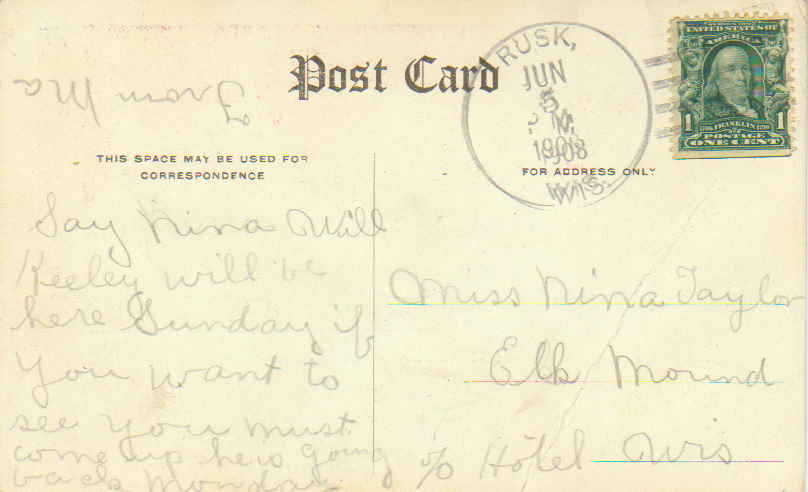 Post Card
RUSK,
JUN
5
P M
1908
WIS.
UNITED STATES OF
AMERICA
1 FRANKLIN 1
POSTAGE
ONE CENT
From Ma
THIS SPACE MAY BE USED FOR
CORRESPONDENCE
FOR ADDRESS ONLY
Say Nina Will
Keeley will be
here Sunday if
you want to
see you must
come up here going
back Monday
Miss Nina Taylor
Elk Mound
c/o Hotel Wis